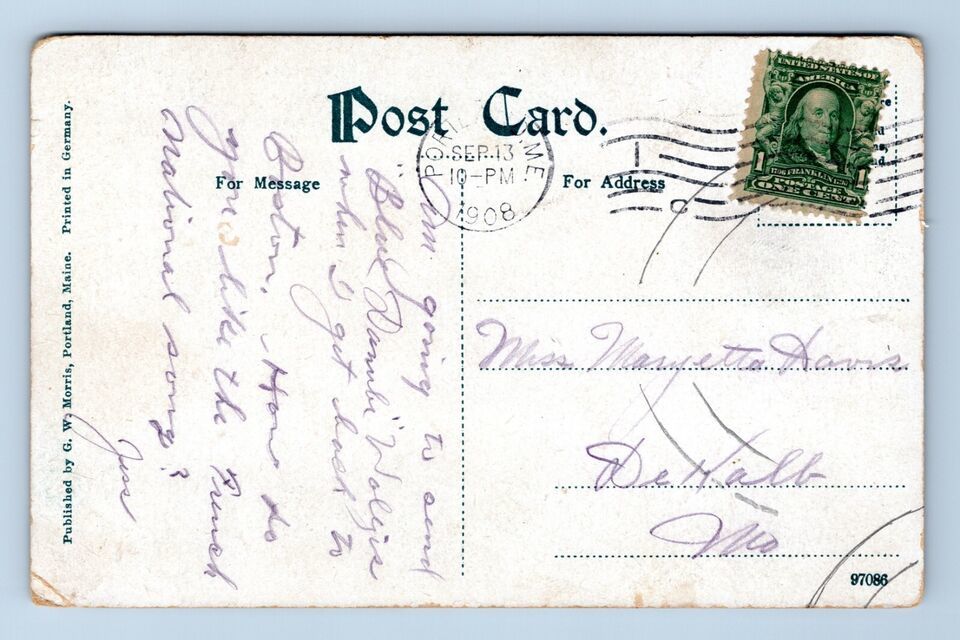 Post Card.
For Message
For Address
PORTLAND, ME.
SEP 13
10-PM
1908
UNITED STATES OF
AMERICA
1706 FRANKLIN 1790
POSTAGE
1 ONE CENT 1
Am going to send
Blue Danube
when I get back to
Boston. How do
you like the French
National song?
Jess
Miss Maryetta Davis
DeKalb
Mo
Published by G. W. Morris, Portland, Maine. Printed in Germany.
97086